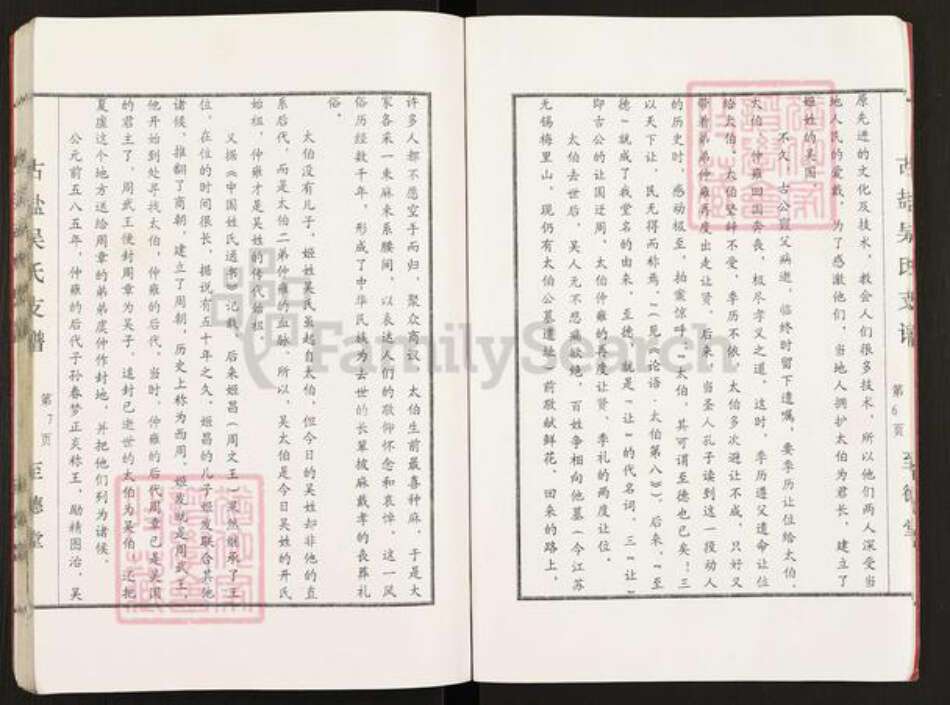 原先进的文化及技术，教会人们很多技术，所以他们两人深受当
地人民的爱戴，为了感激他们，当地人拥护太伯为君长，建立了
姬姓的吴国。
不久，古公亶父病逝，临终时留下遗嘱，要季历让位给太伯，
太伯、仲雍回国奔丧，极尽孝义之道，这时，季历遵父遗命让位
给太伯，太伯坚辞不受，季历不依，太伯多次避让不成，只好又
带着弟弟仲雍再度出走让贤。后来，当圣人孔子读到这一段动人
的历史时，感动极至，拍案惊呼“太伯，其可谓至德也已矣！三
以天下让，民无得而称焉。”（见《论语·太伯第八》），后来，“至
德”就成了我堂名的由来，至德，就是“让”的代名词，三“让”
即古公的让国迁周、太伯仲雍的再度让贤、季札的两度让位。
太伯去世后，吴人无不悲痛欲绝，百姓争相向他墓（今江苏
无锡梅里山，现仍有太伯公墓遗址）前敬献鲜花，回来的路上，
古盐吴氏支谱
第6页
至德堂
许多人都不愿空手而归，聚众商议，太伯生前最喜种麻，于是大
家各采一束麻来系腰间，以表达人们的敬仰怀念和哀悼，这一风
俗历经数千年，形成了中华民族为去世的长辈披麻戴孝的丧葬礼
俗。
太伯没有儿子，姬姓吴氏虽起自太伯，但今日的吴姓却非他的直
系后代，而是太伯二弟仲雍的血脉。所以，吴太伯是今日吴姓的开氏
始祖，仲雍才是吴姓的传代始祖。
又据《中国姓氏通书》记载，后来姬昌（周文王）果然继承了王
位，在位的时间很长，据说有五十年之久。姬昌的儿子姬发联合其他
诸侯，推翻了商朝，建立了周朝，历史上称为西周。姬发就是周武王，
他开始到处寻找太伯、仲雍的后代，当时，仲雍的后代周章已是吴国
的君主了，周武王便封周章为吴子，追封已逝世的太伯为吴伯，还把
夏虚这个地方送给周章的弟弟虞仲作封地，并把他们列为诸侯。
公元前五八五年，仲雍的后代子孙寿梦正炎称王，励精图治，吴
古盐吴氏支谱
第7页
至德堂
FamilySearch